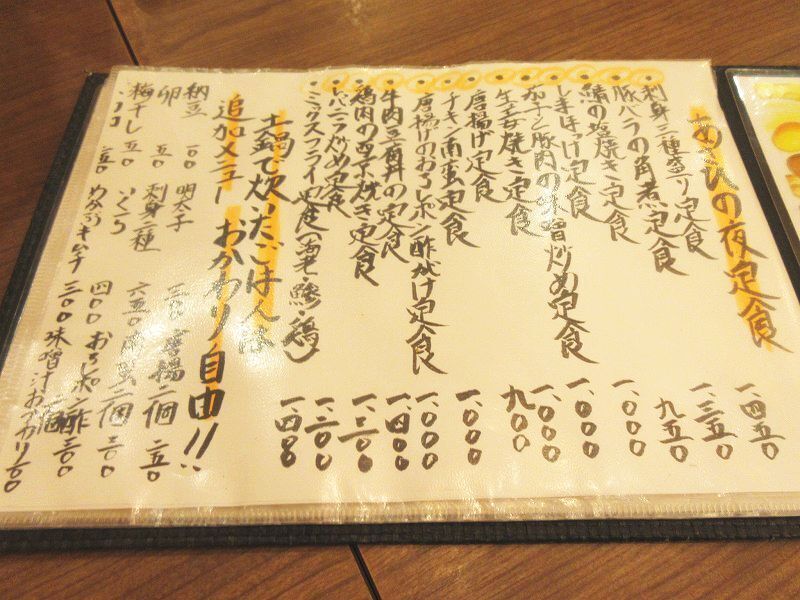 あさひの夜定食
刺身三種盛り定食 一、四五〇
豚バラの角煮定食 一、三五〇
鯖の塩焼き定食 九五〇
しまほっけ定食 一、〇〇〇
茄子と豚肉の味噌炒め定食 一、〇〇〇
生姜焼き定食 一、〇〇〇
唐揚げ定食 九〇〇
チキン南蛮定食 一、〇〇〇
唐揚げのおろしポン酢がけ定食 一、〇〇〇
牛肉豆腐丼の定食 一、四〇〇
鶏肉の西京焼き定食 一、二〇〇
レバニラ炒め定食 一、三〇〇
ミックスフライ定食（海老・鯵・鶏） 一、四〇〇
土鍋で炊いたごはんは
おかわり自由!!
追加メニュー
納豆 一〇〇
明太子 三〇〇
唐揚二個 二五〇
卵 五〇
刺身三種 六五〇
二個 三〇〇
梅干し 五〇
いくら 四〇〇
おろしポン酢 一〇〇
めかぶ
キムチ 三〇〇
味噌汁おかわり 一〇〇